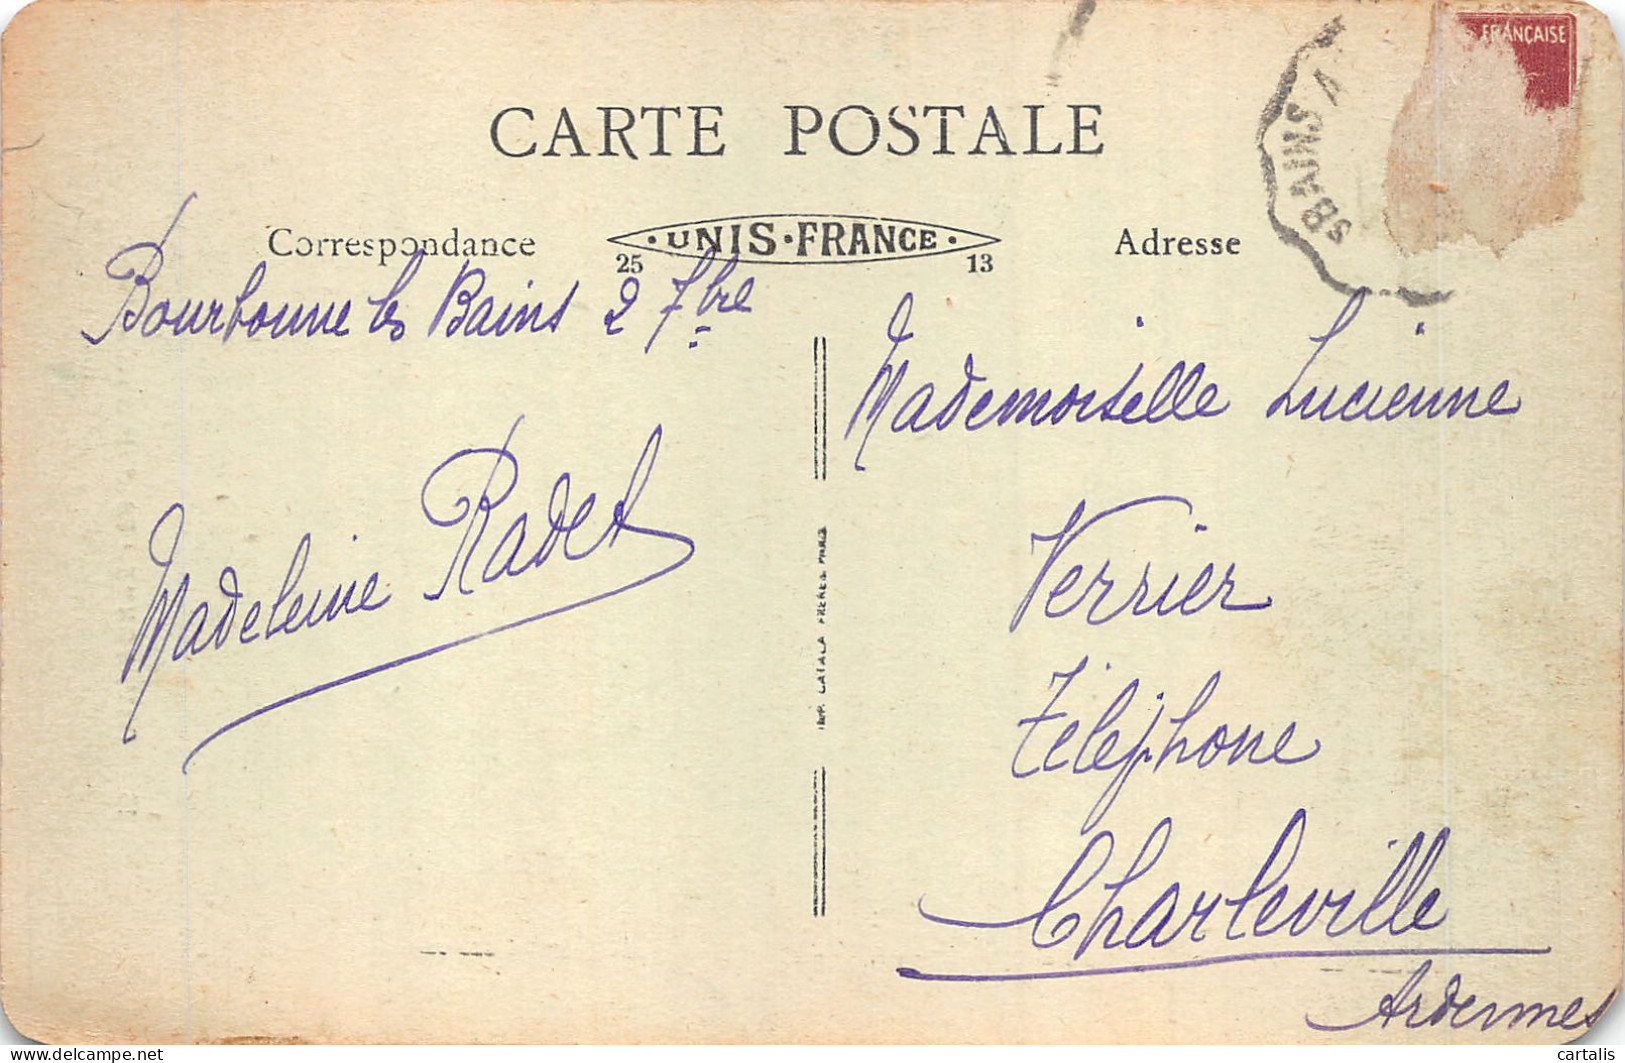 FRANÇAISE
SBAINS A
CARTE POSTALE
Correspondance
·UNIS·FRANCE·
25 13
Adresse
Bourbonne les Bains 2 7bre
Madeleine Radet
Mademoiselle Lucienne
Verrier
Téléphone
Charleville
Ardennes
IMP. CATALA FRERES PARIS
cartalis
www.delcampe.net